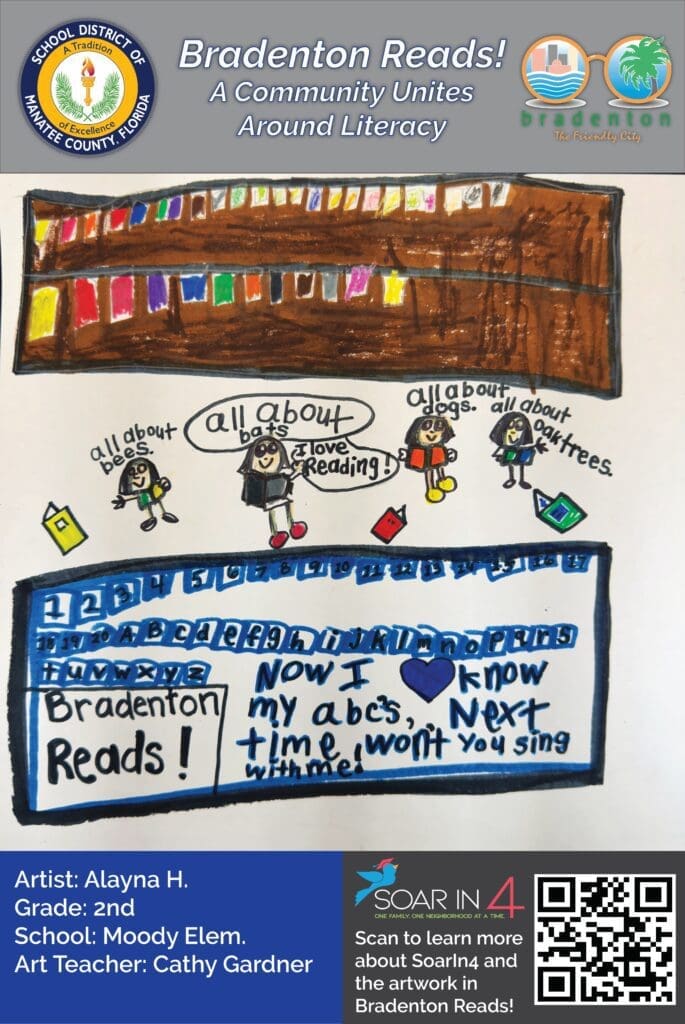 SCHOOL DISTRICT OF
A Tradition
of Excellence
MANATEE COUNTY, FLORIDA
Bradenton Reads!
A Community Unites
Around Literacy
bradenton
The Friendly City
all about
bees.
all about
bats
I love
Reading!
all about
dogs.
all about
oaktrees.
1 2 3 4 5 6 7 8 9 10 11 12 13 14 15 16 17
18 19 20 A B c d e f g h i j k l m n o p q r s
t u v w x y z
Bradenton
Reads!
Now I know
my abc's, Next
time, won't you sing
with me!
Artist: Alayna H.
Grade: 2nd
School: Moody Elem.
Art Teacher: Cathy Gardner
SOAR IN 4
ONE FAMILY, ONE NEIGHBORHOOD AT A TIME.
Scan to learn more
about SoarIn4 and
the artwork in
Bradenton Reads!